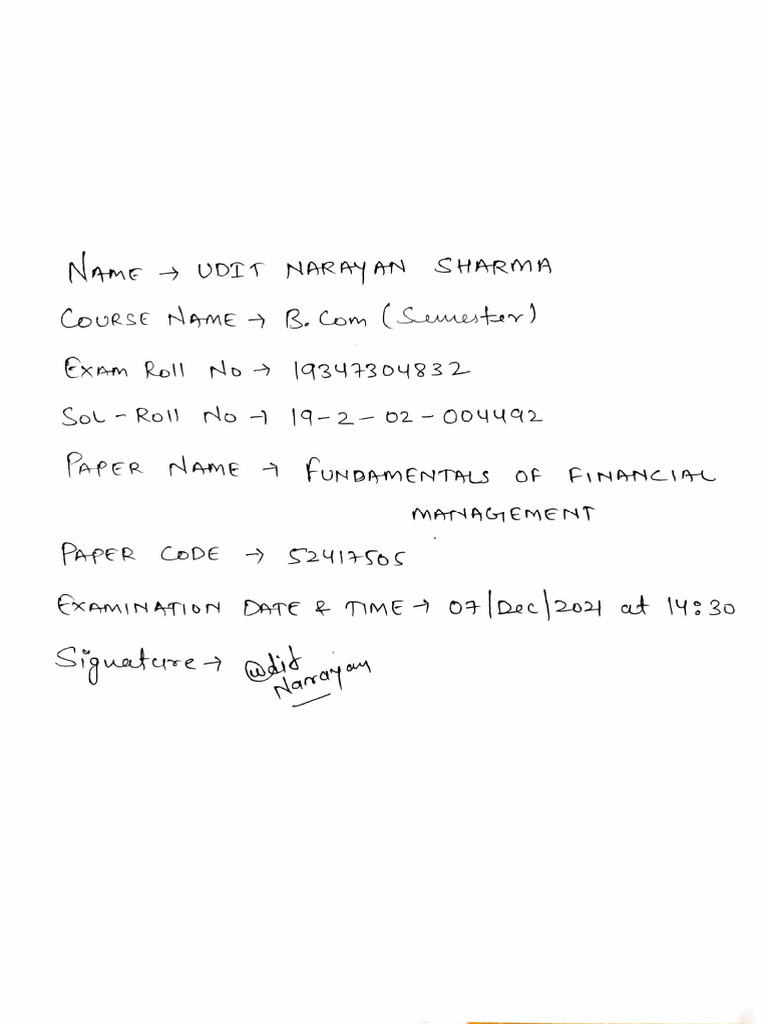 NAME → UDIT NARAYAN SHARMA
COURSE NAME → B.Com (Semester)
EXAM Roll No → 19347304832
SOL - Roll No → 19-2-02-004492
PAPER NAME → FUNDAMENTALS OF FINANCIAL
MANAGEMENT
PAPER CODE → 52417505
EXAMINATION DATE & TIME → 07/Dec/2021 at 14:30
Signature → Udit
Narayan